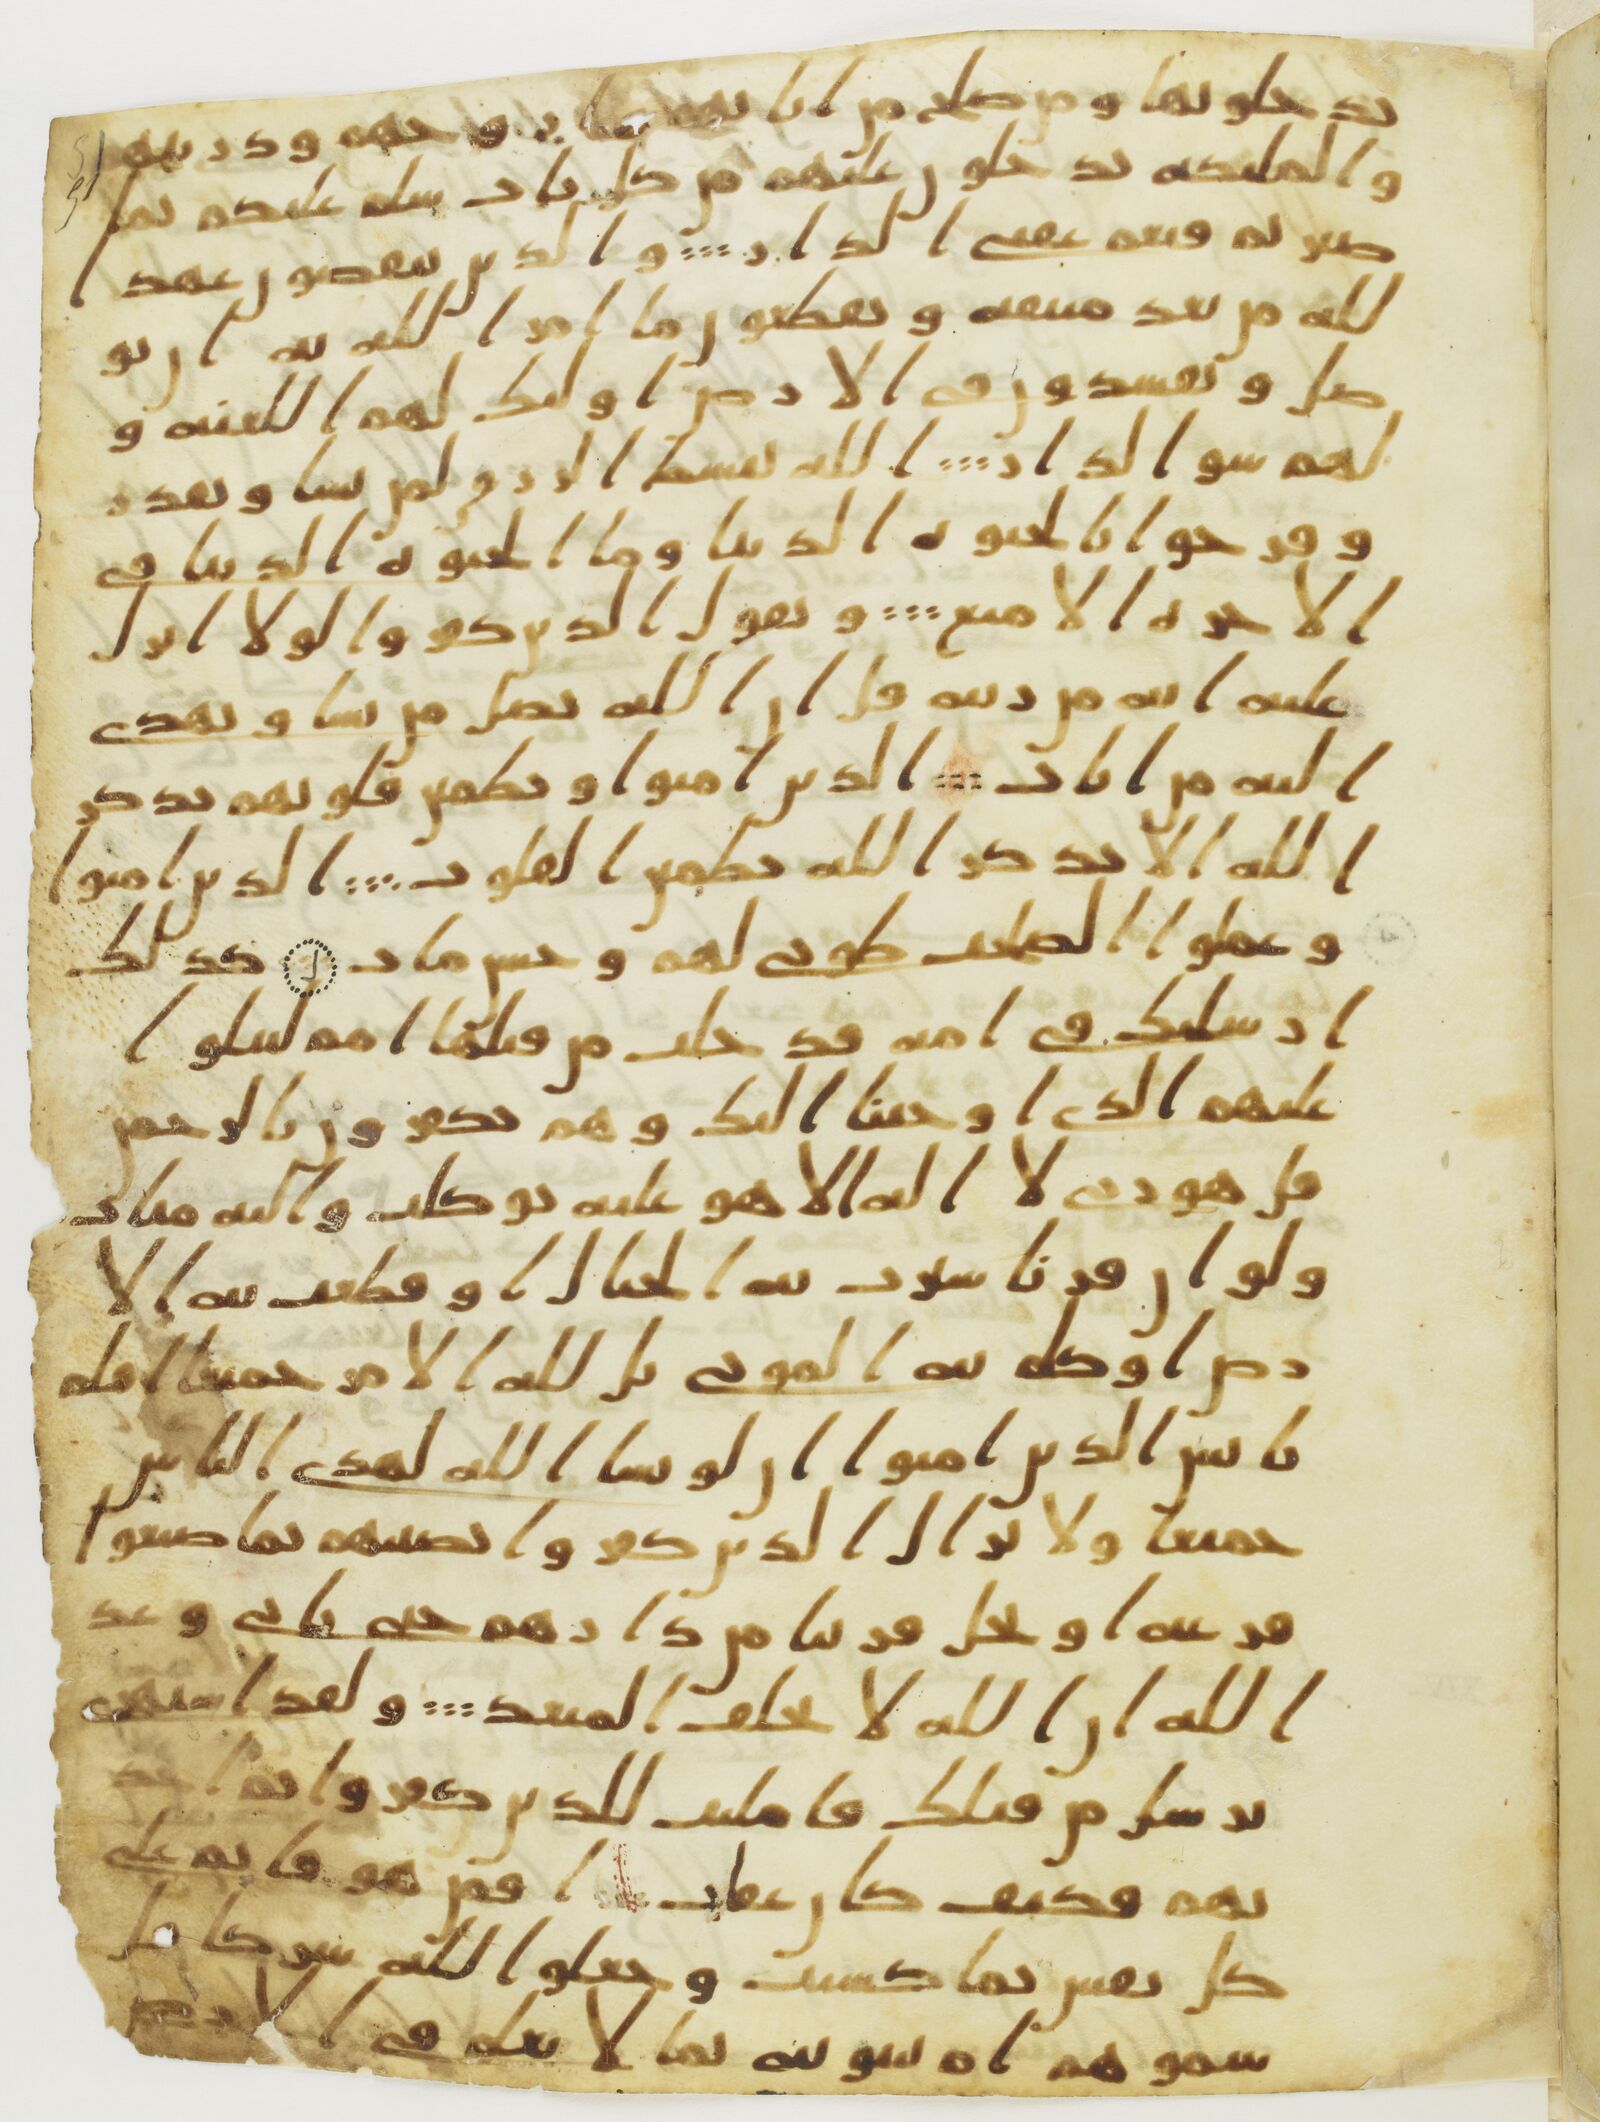 يدخلونها ومن صلح من ابايهم وازوجهم وذريتهم
والمليكه يدخلون عليهم من كل باب سلم عليكم بما
صبرتم فنعم عقبى الدار والذين ينقضون عهد ا
لله من بعد ميثقه ويقطعون ما امر الله به ان يو
صل ويفسدون في الارض اوليك لهم اللعنه و
لهم سو الدار الله يبسط الرزق لمن يشا ويقدر
وفرحوا بالحيوه الدنيا وما الحيوه الدنيا في
الاخره الا متع ويقول الذين كفروا لولا انزل
عليه ايه من ربه قل ان الله يضل من يشا ويهدي
اليه من اناب الذين امنوا وتطمين قلوبهم بذكر
الله الا بذكر الله تطمين القلوب الذين امنوا
وعملوا الصلحت طوبى لهم وحسن ماب ل كذلك
ارسلنك في امه قد خلت من قبلها امم لتتلوا
عليهم الذي اوحينا اليك وهم يكفرون بالرحمن
قل هو ربي لا اله الا هو عليه توكلت واليه متاب
ولو ان قرنا سيرت به الجبال او قطعت به الا
رض او كلم به الموتى بل لله الامر جميعا افلم
يايس الذين امنوا ان لو يشا الله لهدى الناس
جميعا ولا يزال الذين كفروا تصيبهم بما صنعوا
قرعه او تحل قريبا من دارهم حتى ياتي وعد
الله ان الله لا يخلف الميعد ولقد استهزي
برسل من قبلك فامليت للذين كفروا ثم اخذ
تهم فكيف كان عقاب افمن هو قايم على
كل نفس بما كسبت وجعلوا لله شركا قل
سموهم ام تنبونه بما لا يعلم في الارض